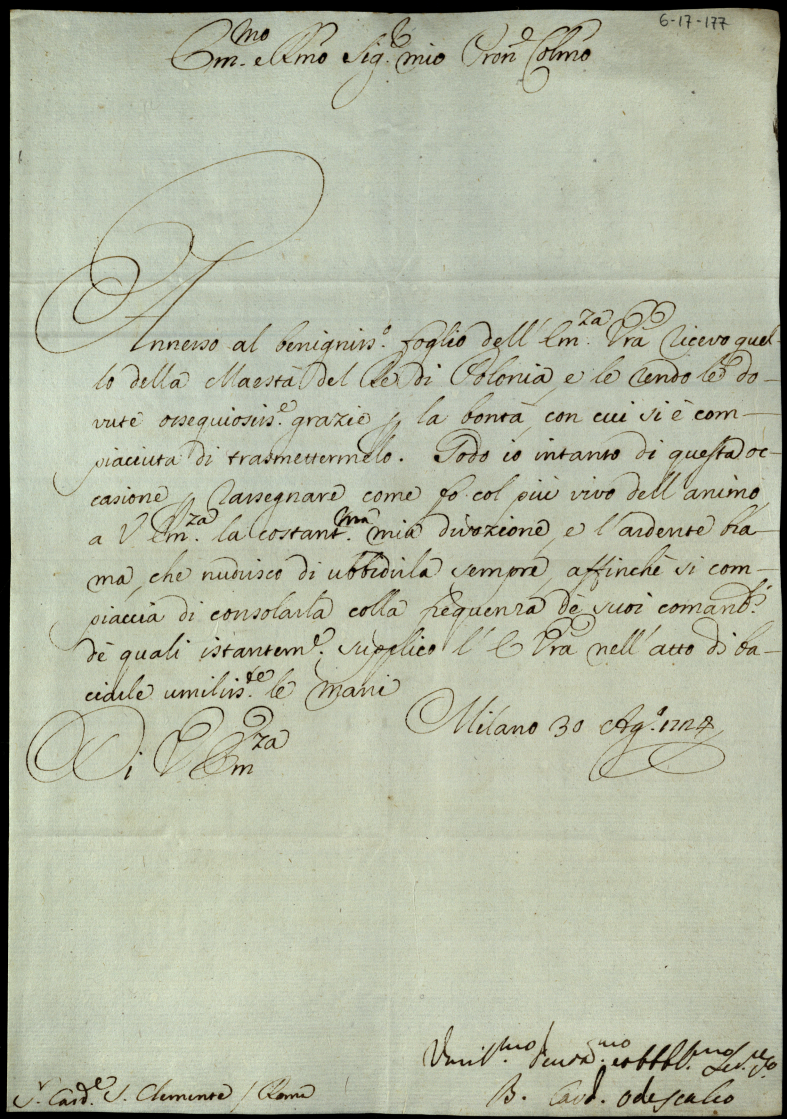 6-17-177
Em.mo e Rmo Sig.r mio Pron.e Colmo
Annesso al benigniss.o foglio dell' Em.za Vra ricevo quel-
lo della Maestà del Re di Polonia, e le rendo le do-
vute ossequiosiss.e grazie p la bontà, con cui si è com-
piaciuta di trasmettermelo. Godo io intanto di questa oc-
casione p rassegnare come fo col più vivo dell' animo
a V Em.za la costantma mia divozione, e l' ardente bra-
ma, che nudrisco di ubbidirla sempre, affinchè si com-
piaccia di consolarla colla frequenza de' suoi comandi.
de' quali istantem.e supplico l' E Vra nell' atto di ba-
ciarle umiliss.te le mani
Di V Em.za Milano 30 Ag.o 1724
Umil.mo obbl.mo Ser.re
S.r Card.e S. Clemente / Roma B. Card. Odescalco